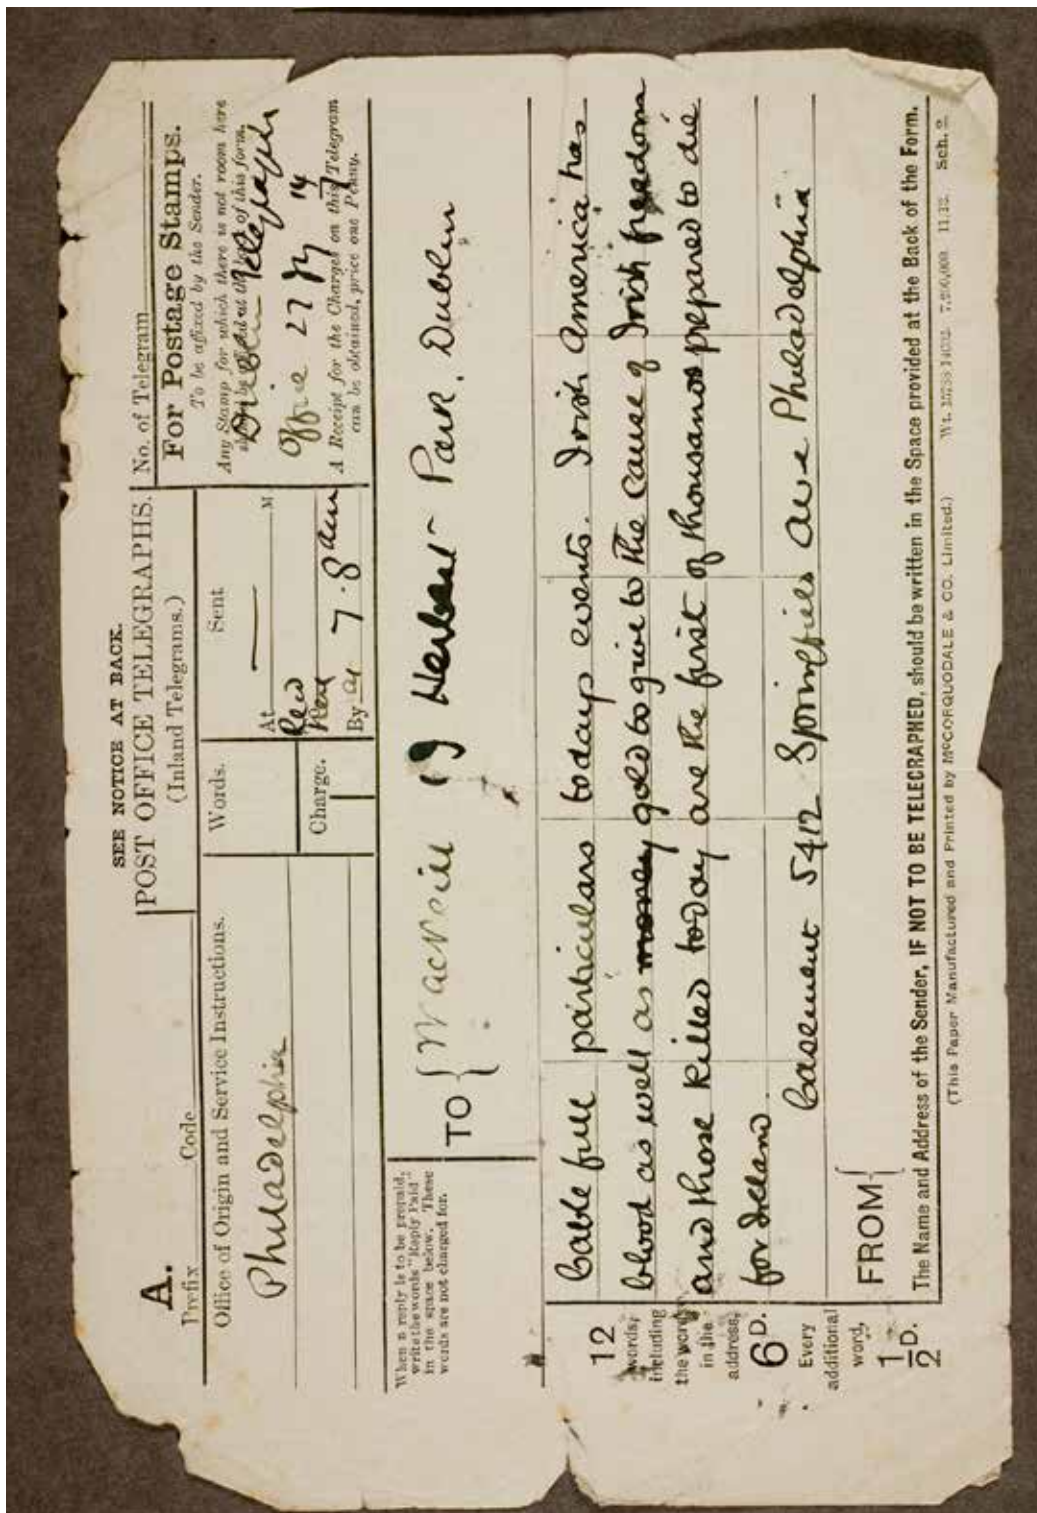 SEE NOTICE AT BACK.
A.
POST OFFICE TELEGRAPHS.
No. of Telegram
Prefix Code
(Inland Telegrams.)
For Postage Stamps.
To be affixed by the Sender.
Office of Origin and Service Instructions.
Words.
Sent
Any Stamp for which there is not room here
at the back of this form.
Philadelphia
At M
Telegraphs
Office 27 Jy 14
Charge.
By 7.8 am
A Receipt for the Charges on this Telegram
can be obtained, price one Penny.
When a reply is to be prepaid,
write the words "Reply Paid"
in the space below. These
words are not charged for.
TO { MacNeill 19 Herbert Park. Dublin
12
words,
including
the words
in the
address,
6D.
Every
additional
word,
1/2 D.
Cable full particulars todays events. Irish America has
blood as well as money gold to give to the cause of Irish freedom
and those killed today are the first of thousands prepared to die
for Ireland
Casement 5412 Springfield ave Philadelphia
FROM {
The Name and Address of the Sender, IF NOT TO BE TELEGRAPHED, should be written in the Space provided at the Back of the Form.
(This Paper Manufactured and Printed by McCORQUODALE & CO. Limited.) Sch. 2